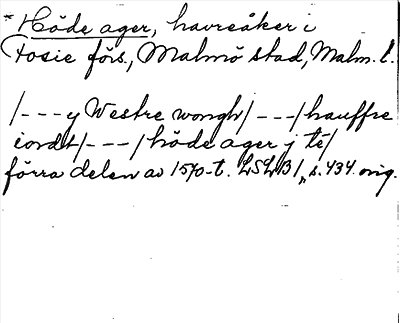 * Höde ager, havreåker i
Fosie förs., Malmö stad, Malm. l.
/---y Westre wongh/---/hauffre
iordt/---/höde ager j té/
förra delen av 1570-t. LSLB 1, s. 434. orig.